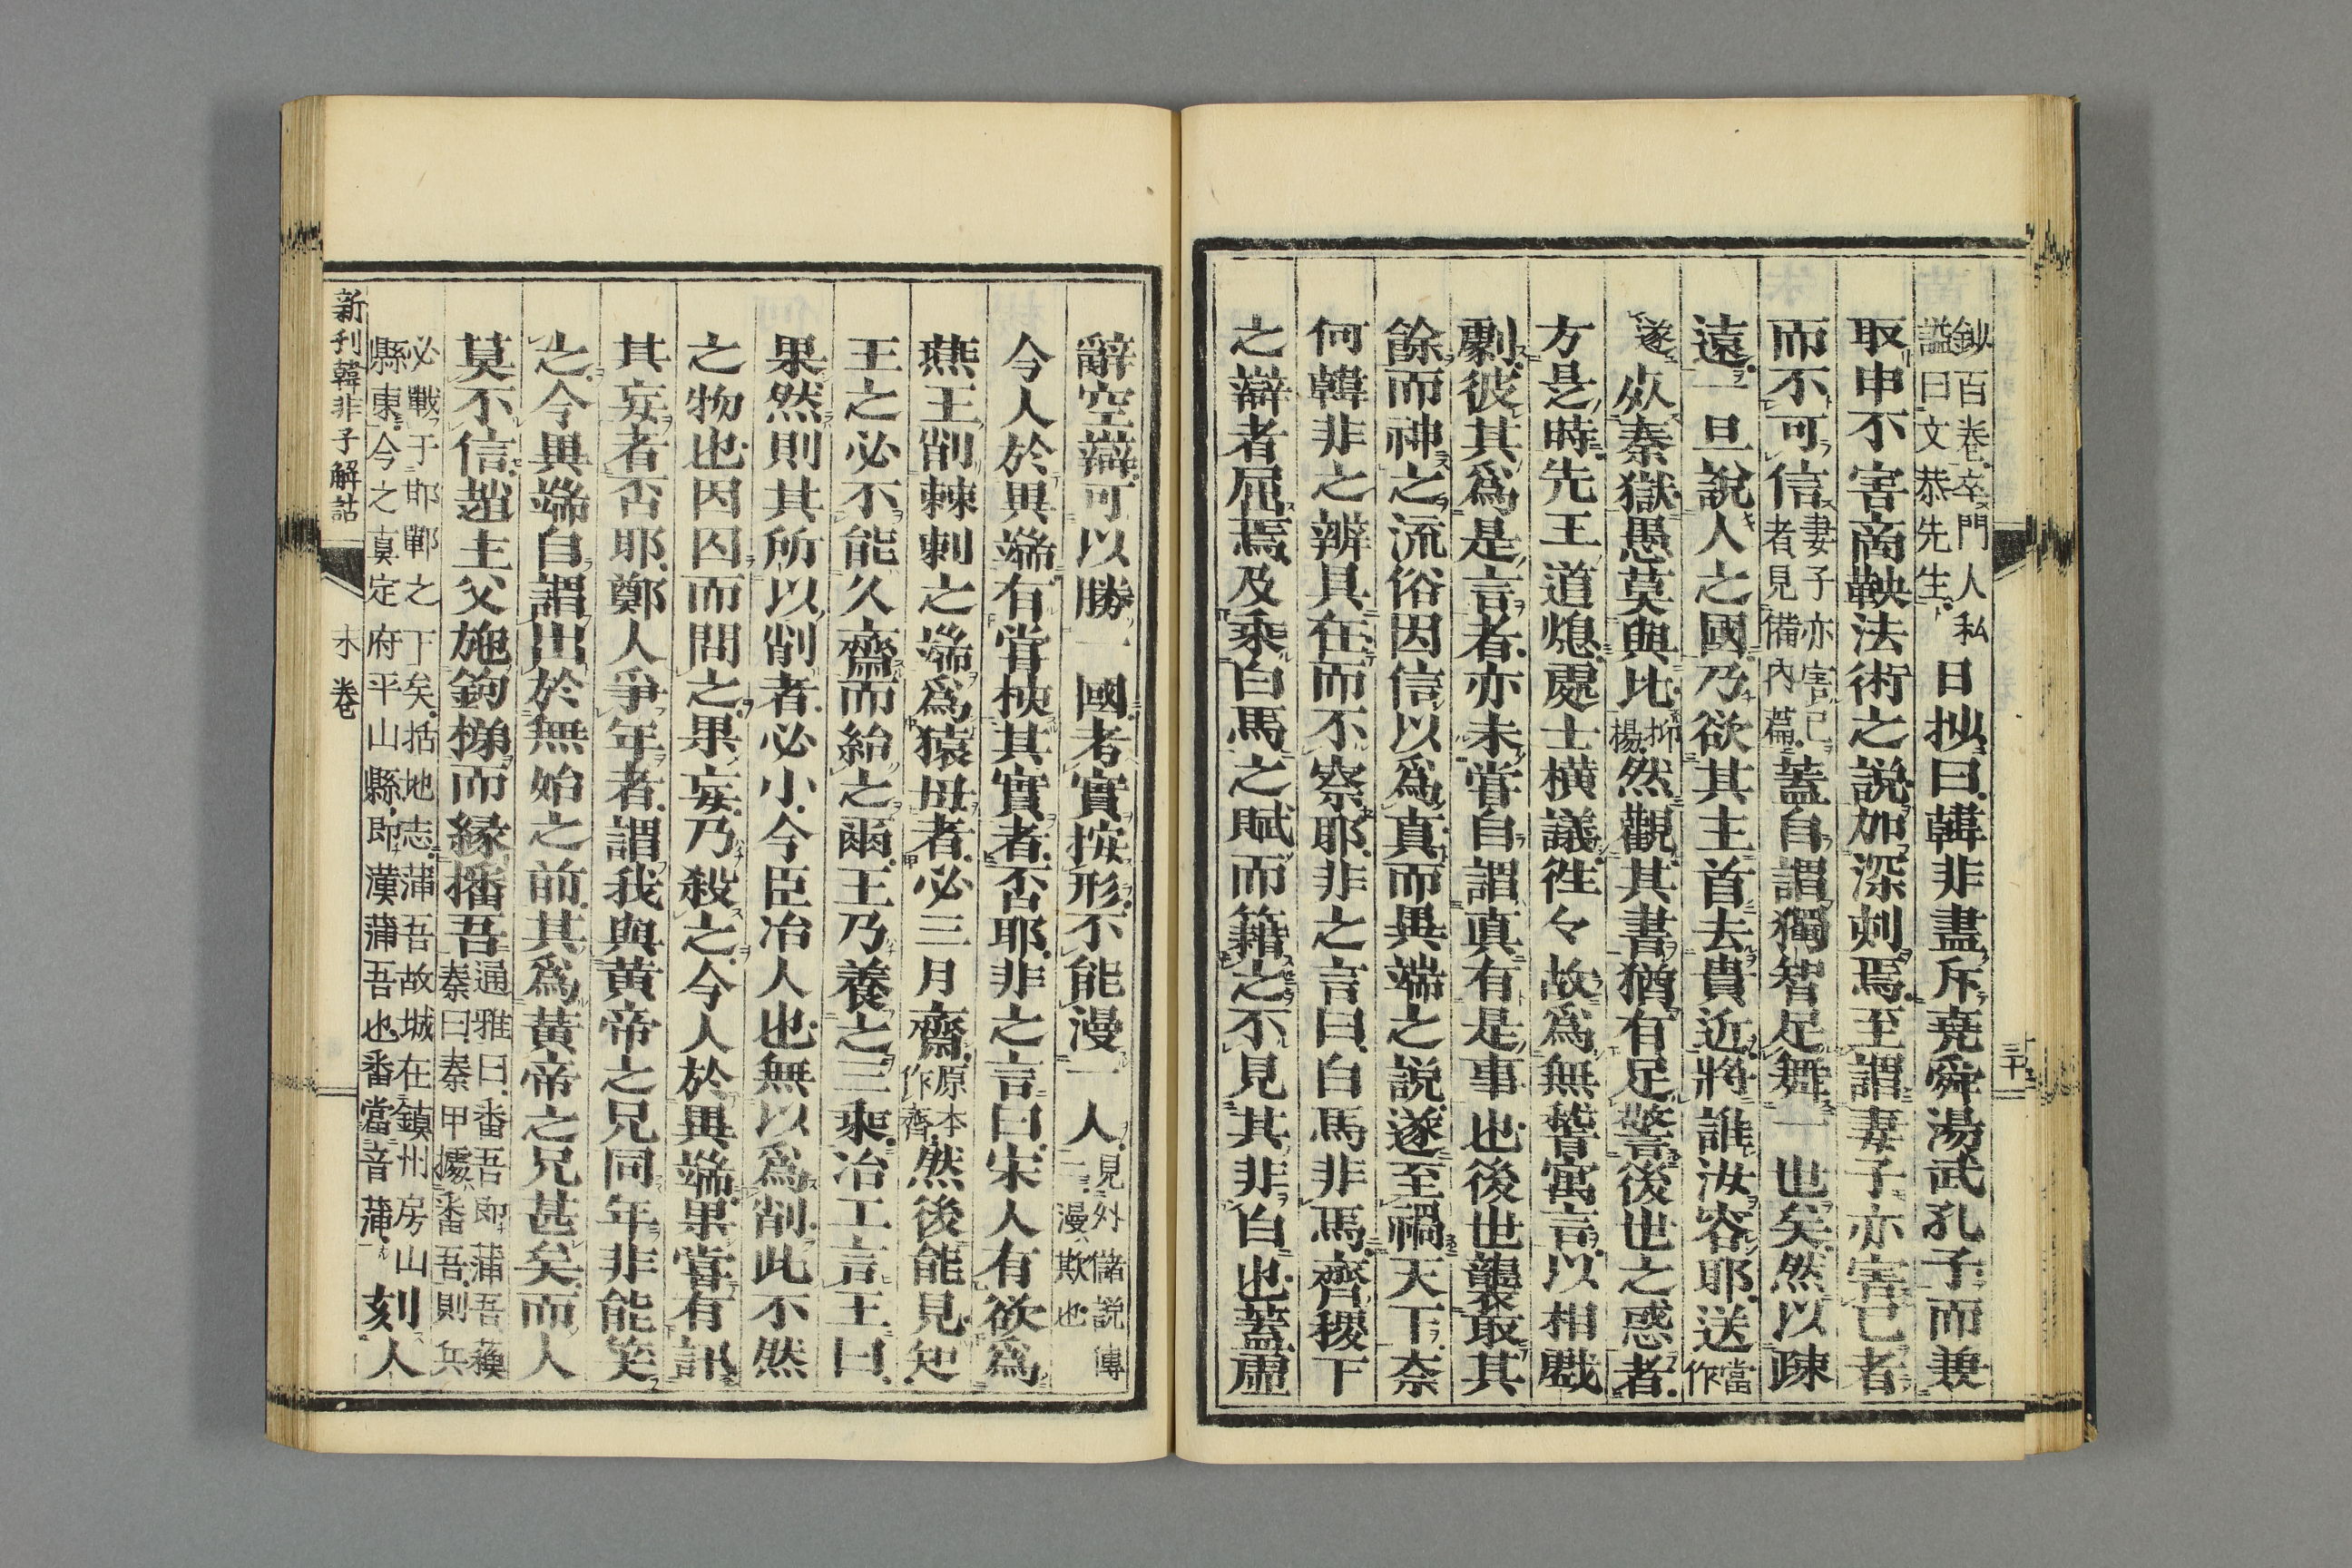 鈔百卷卒門人私
謚曰文恭先生
日抄曰韓非盡斥堯舜湯武孔子而兼
取申不害商鞅法術之說加深刻焉至謂妻子亦害己者
而不可信
妻子亦害己
者見備內篇
蓋自謂獨智足舞一世矣然以疎
遠一旦說人之國乃欲其主首去貴近將誰汝容耶送
當作
遂
死秦獄愚莫與比
抑揚
然觀其書猶有足警後世之惑者
方是時先王道熄處士橫議徃々故爲無稽寓言以相戲
劇彼其爲是言者亦未甞自謂真有是事也後世襲取其
餘而神之流俗因信以爲真而異端之說遂至禍天下奈
何韓非之辨具在而不察耶非之言曰白馬非馬齊稷下
之辯者屈焉及乘白馬之賦而籍之不見其非白也蓋虛
辭空辯可以勝一國考實按形不能漫一人
見外儲說傳
二漫欺也
今人於異端有甞挾其實者否耶非之言曰宋人有欲爲
燕王削棘刺之端爲猿母者必三月齋
原本
作齊
然後能見知
王之必不能久齋而紿之爾王乃養之三乘冶工言王曰
果然則其所以削者必小今臣冶人也無以爲削此不然
之物也因囚而問之果妄乃殺之今人於異端果甞有訊
其妄者否耶鄭人爭年者謂我與黃帝之兄同年非能笑
之今異端自謂出於無始之前其爲黃帝之兄甚矣而人
莫不信趙主父施鉤梯而緣播吾
通雅曰番吾即蒲吾蘇
秦曰秦甲據番吾則兵
必戰于邯鄲之下矣括地志蒲吾故城在鎮州房山
縣東今之真定府平山縣即漢蒲吾也番當音蒲
刻人
新刊韓非子解詁
卷